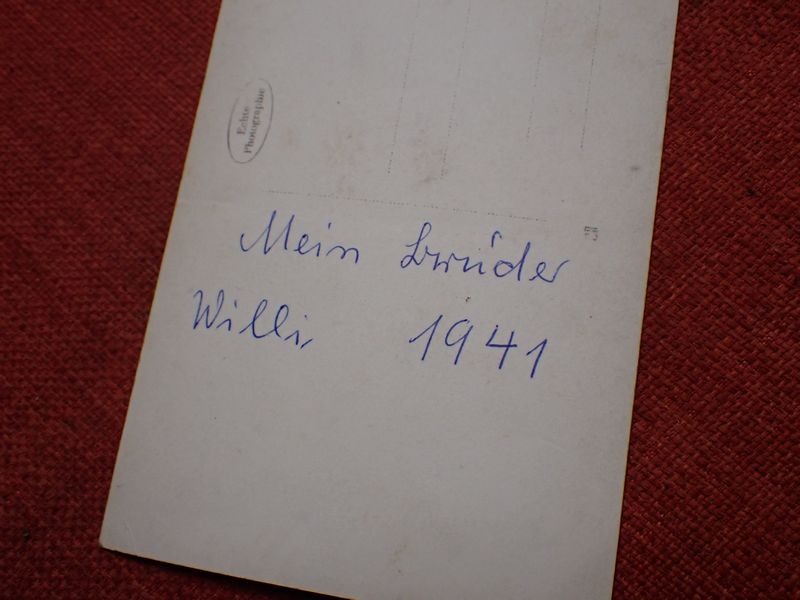 Echte
Photographie
Mein Bruder
Willi 1941